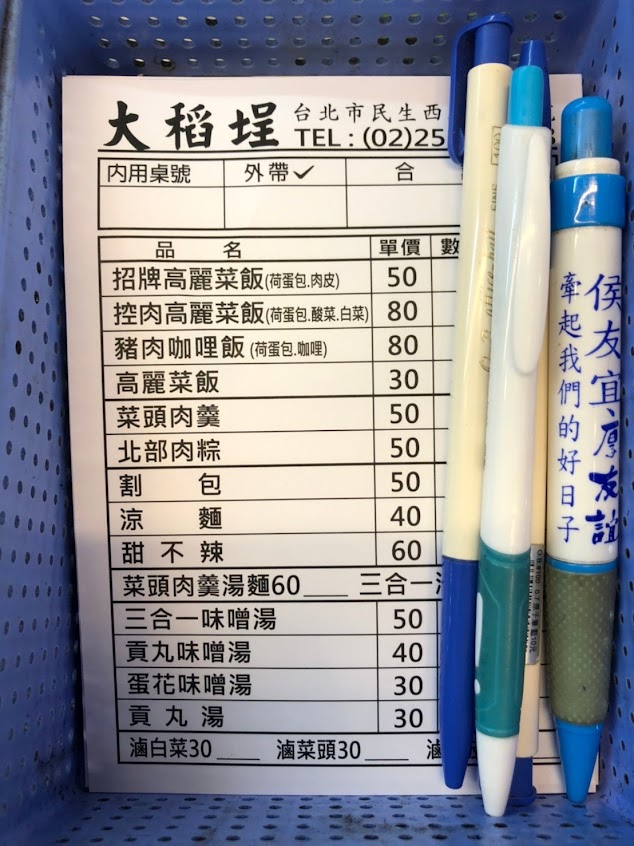 大稻埕 台北市民生西
TEL:(02)25
內用桌號 外帶✓ 合
品名 單價 數
招牌高麗菜飯(荷蛋包.肉皮) 50
控肉高麗菜飯(荷蛋包.酸菜.白菜) 80
豬肉咖哩飯(荷蛋包.咖哩) 80
高麗菜飯 30
菜頭肉羹 50
北部肉粽 50
割包 50
涼麵 40
甜不辣 60
菜頭肉羹湯麵60____ 三合一
三合一味噌湯 50
貢丸味噌湯 40
蛋花味噌湯 30
貢丸湯 30
滷白菜30____ 滷菜頭30____ 滷
侯友宜厚友誼
牽起我們的好日子